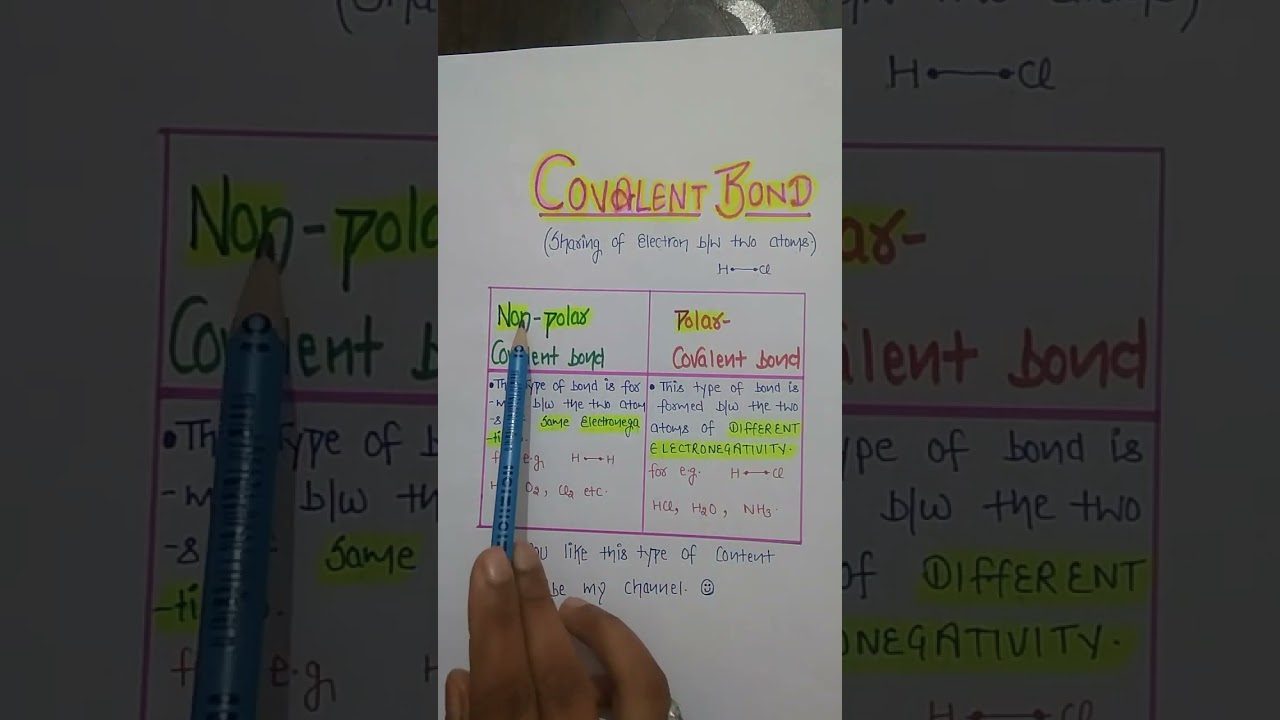 COVALENT BOND
(Sharing of electron b/w two atoms)
H Cl
Non-polar
Covalent bond
Polar-
Covalent bond
type of bond is for
b/w the two atom
same Electronega
H H
O2, Cl2 etc.
• This type of bond is
formed b/w the two
atoms of DIFFERENT
ELECTRONEGATIVITY.
for e.g. H Cl
HCl, H2O, NH3.
you like this type of content
my channel. ☺